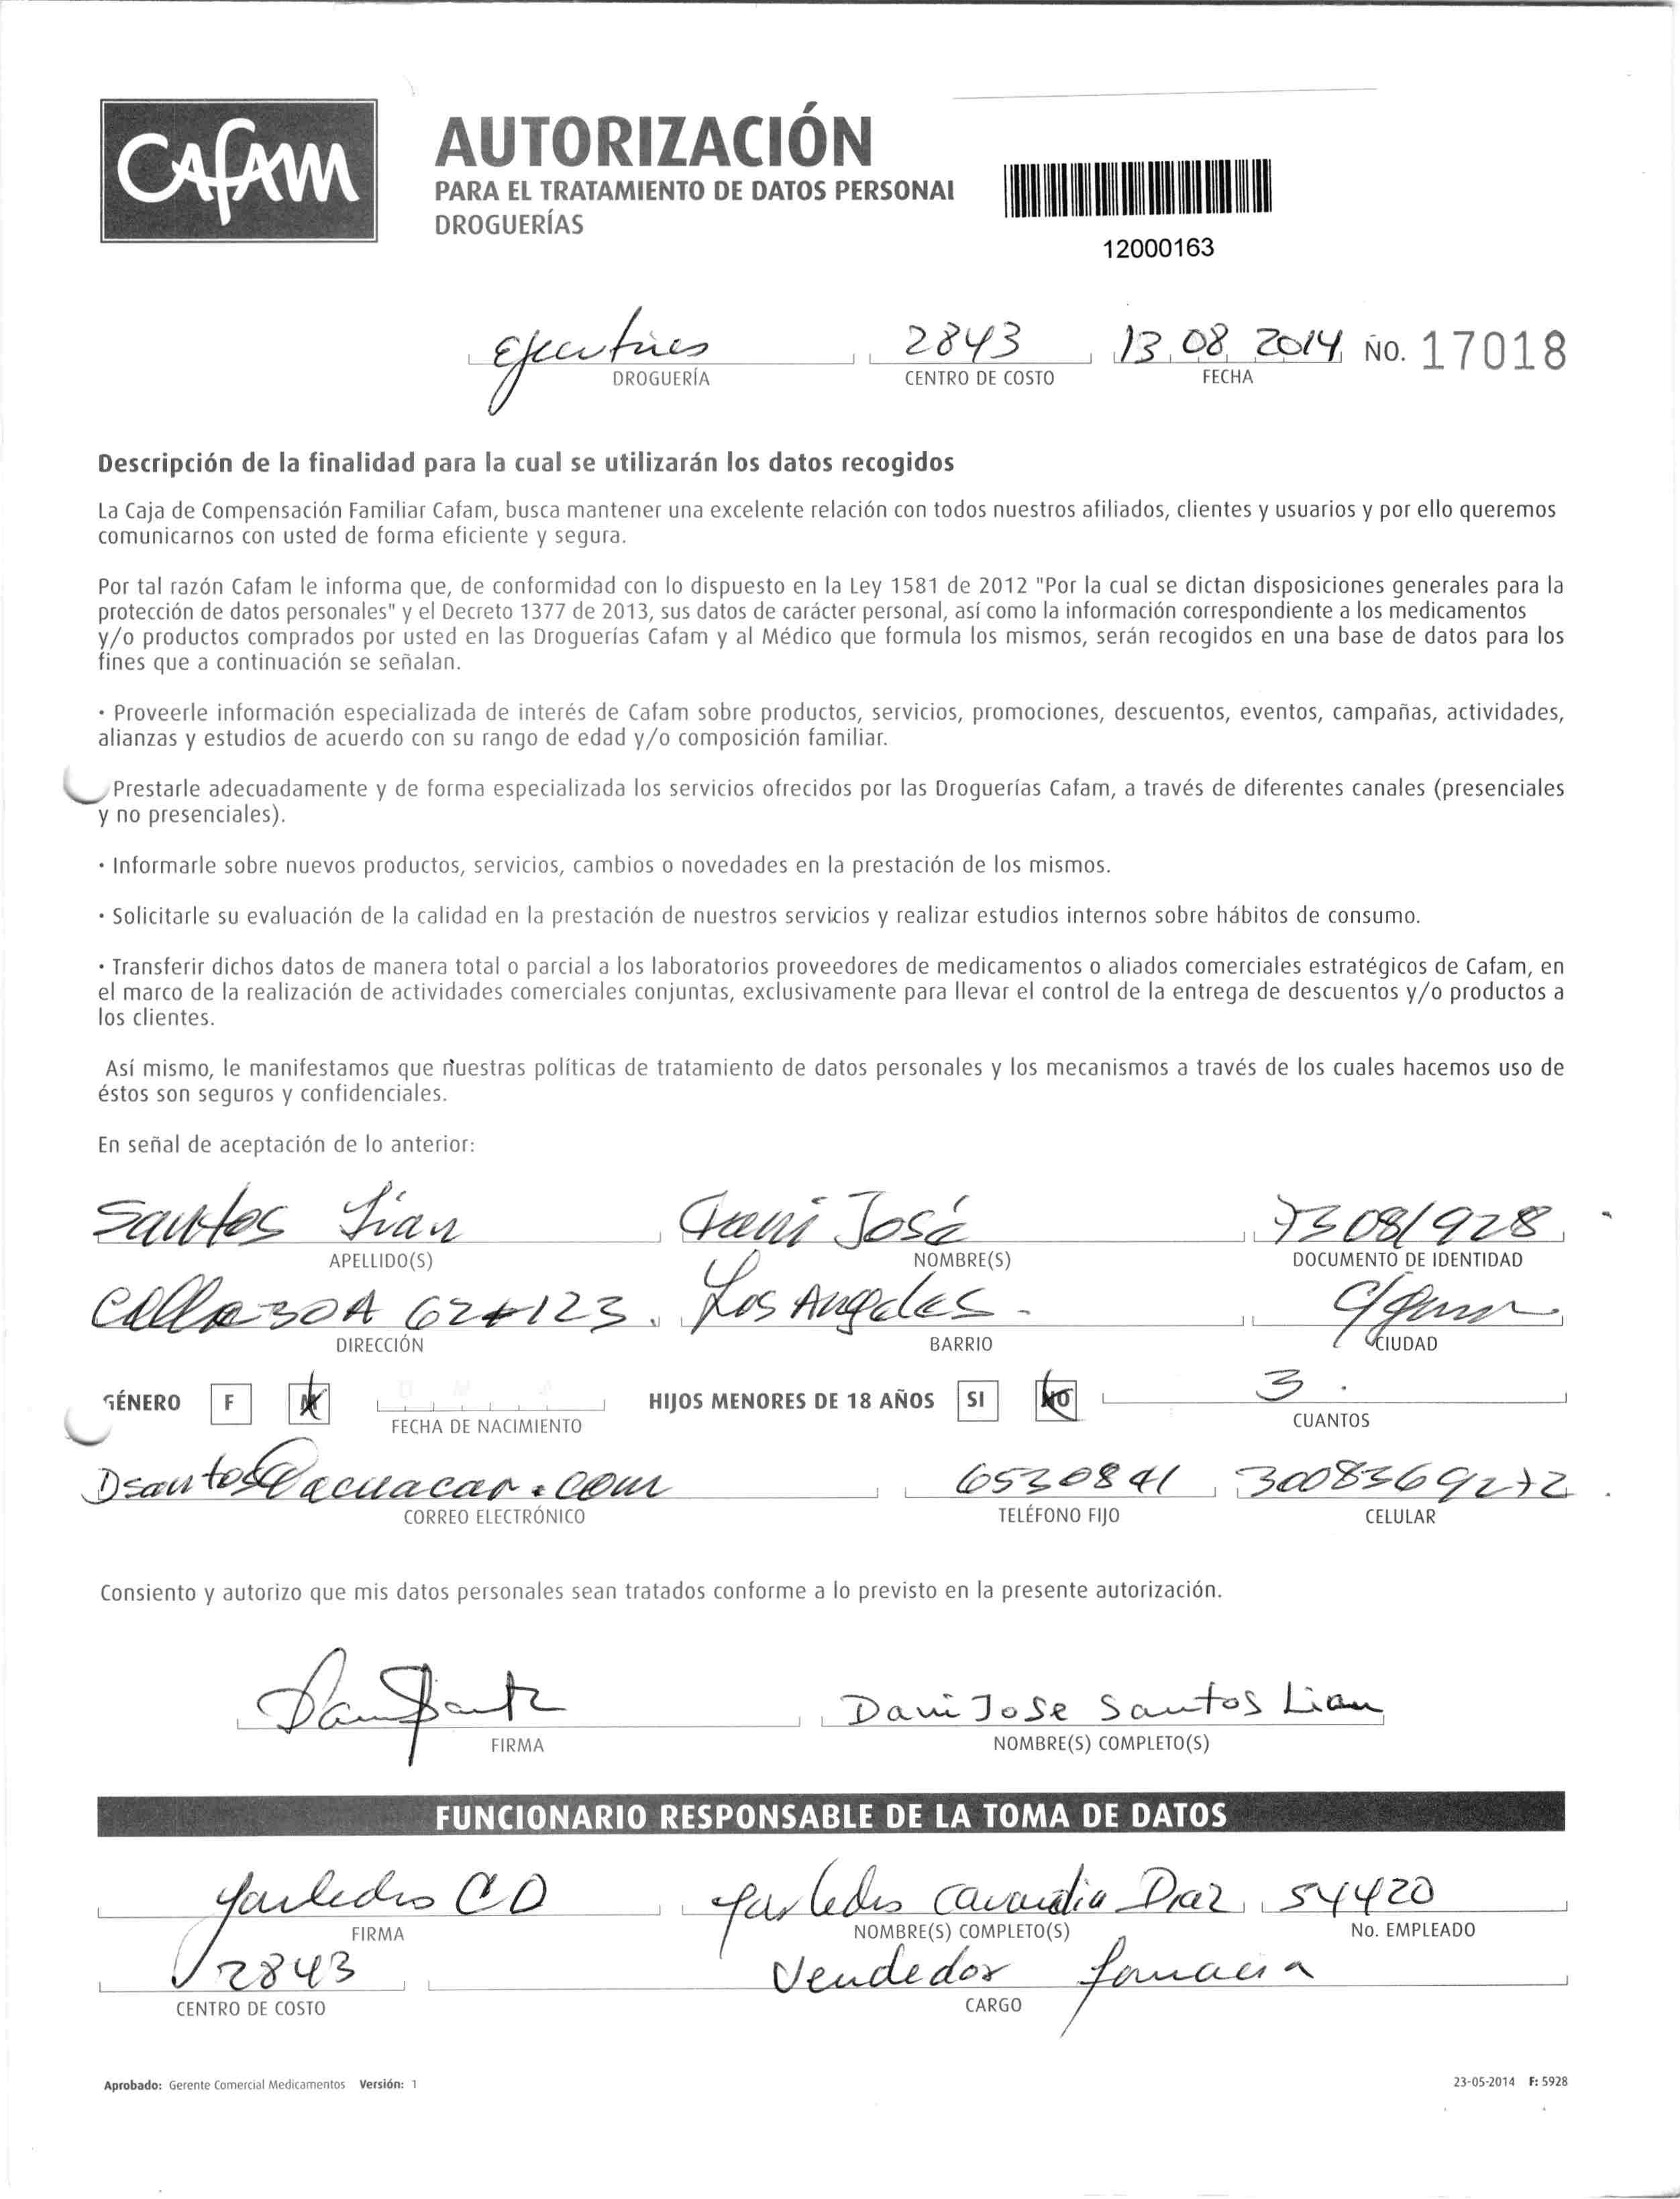 Cafam
AUTORIZACIÓN
PARA EL TRATAMIENTO DE DATOS PERSONAL
DROGUERÍAS
12000163
Ejecutivos 2843 13 08 2014 No. 17018
DROGUERÍA CENTRO DE COSTO FECHA
Descripción de la finalidad para la cual se utilizarán los datos recogidos
La Caja de Compensación Familiar Cafam, busca mantener una excelente relación con todos nuestros afiliados, clientes y usuarios y por ello queremos
comunicarnos con usted de forma eficiente y segura.
Por tal razón Cafam le informa que, de conformidad con lo dispuesto en la Ley 1581 de 2012 "Por la cual se dictan disposiciones generales para la
protección de datos personales" y el Decreto 1377 de 2013, sus datos de carácter personal, así como la información correspondiente a los medicamentos
y/o productos comprados por usted en las Droguerías Cafam y al Médico que formula los mismos, serán recogidos en una base de datos para los
fines que a continuación se señalan.
· Proveerle información especializada de interés de Cafam sobre productos, servicios, promociones, descuentos, eventos, campañas, actividades,
alianzas y estudios de acuerdo con su rango de edad y/o composición familiar.
Prestarle adecuadamente y de forma especializada los servicios ofrecidos por las Droguerías Cafam, a través de diferentes canales (presenciales
y no presenciales).
· Informarle sobre nuevos productos, servicios, cambios o novedades en la prestación de los mismos.
· Solicitarle su evaluación de la calidad en la prestación de nuestros servicios y realizar estudios internos sobre hábitos de consumo.
· Transferir dichos datos de manera total o parcial a los laboratorios proveedores de medicamentos o aliados comerciales estratégicos de Cafam, en
el marco de la realización de actividades comerciales conjuntas, exclusivamente para llevar el control de la entrega de descuentos y/o productos a
los clientes.
Así mismo, le manifestamos que nuestras políticas de tratamiento de datos personales y los mecanismos a través de los cuales hacemos uso de
éstos son seguros y confidenciales.
En señal de aceptación de lo anterior:
Santos Lian Dani José
APELLIDO(S) NOMBRE(S) DOCUMENTO DE IDENTIDAD
Calle 30A 62#123. Los Angeles.
DIRECCIÓN BARRIO CIUDAD
GÉNERO F M HIJOS MENORES DE 18 AÑOS SI NO 3.
FECHA DE NACIMIENTO CUANTOS
Dsantos@acuacar.com 6530841 3008369272
CORREO ELECTRÓNICO TELÉFONO FIJO CELULAR
Consiento y autorizo que mis datos personales sean tratados conforme a lo previsto en la presente autorización.
Dani Jose Santos Lian
FIRMA NOMBRE(S) COMPLETO(S)
FUNCIONARIO RESPONSABLE DE LA TOMA DE DATOS
Diaz 54420
FIRMA NOMBRE(S) COMPLETO(S) No. EMPLEADO
2843 Vendedor farmacia
CENTRO DE COSTO CARGO
Aprobado: Gerente Comercial Medicamentos Versión: 1 23-05-2014 F: 5928